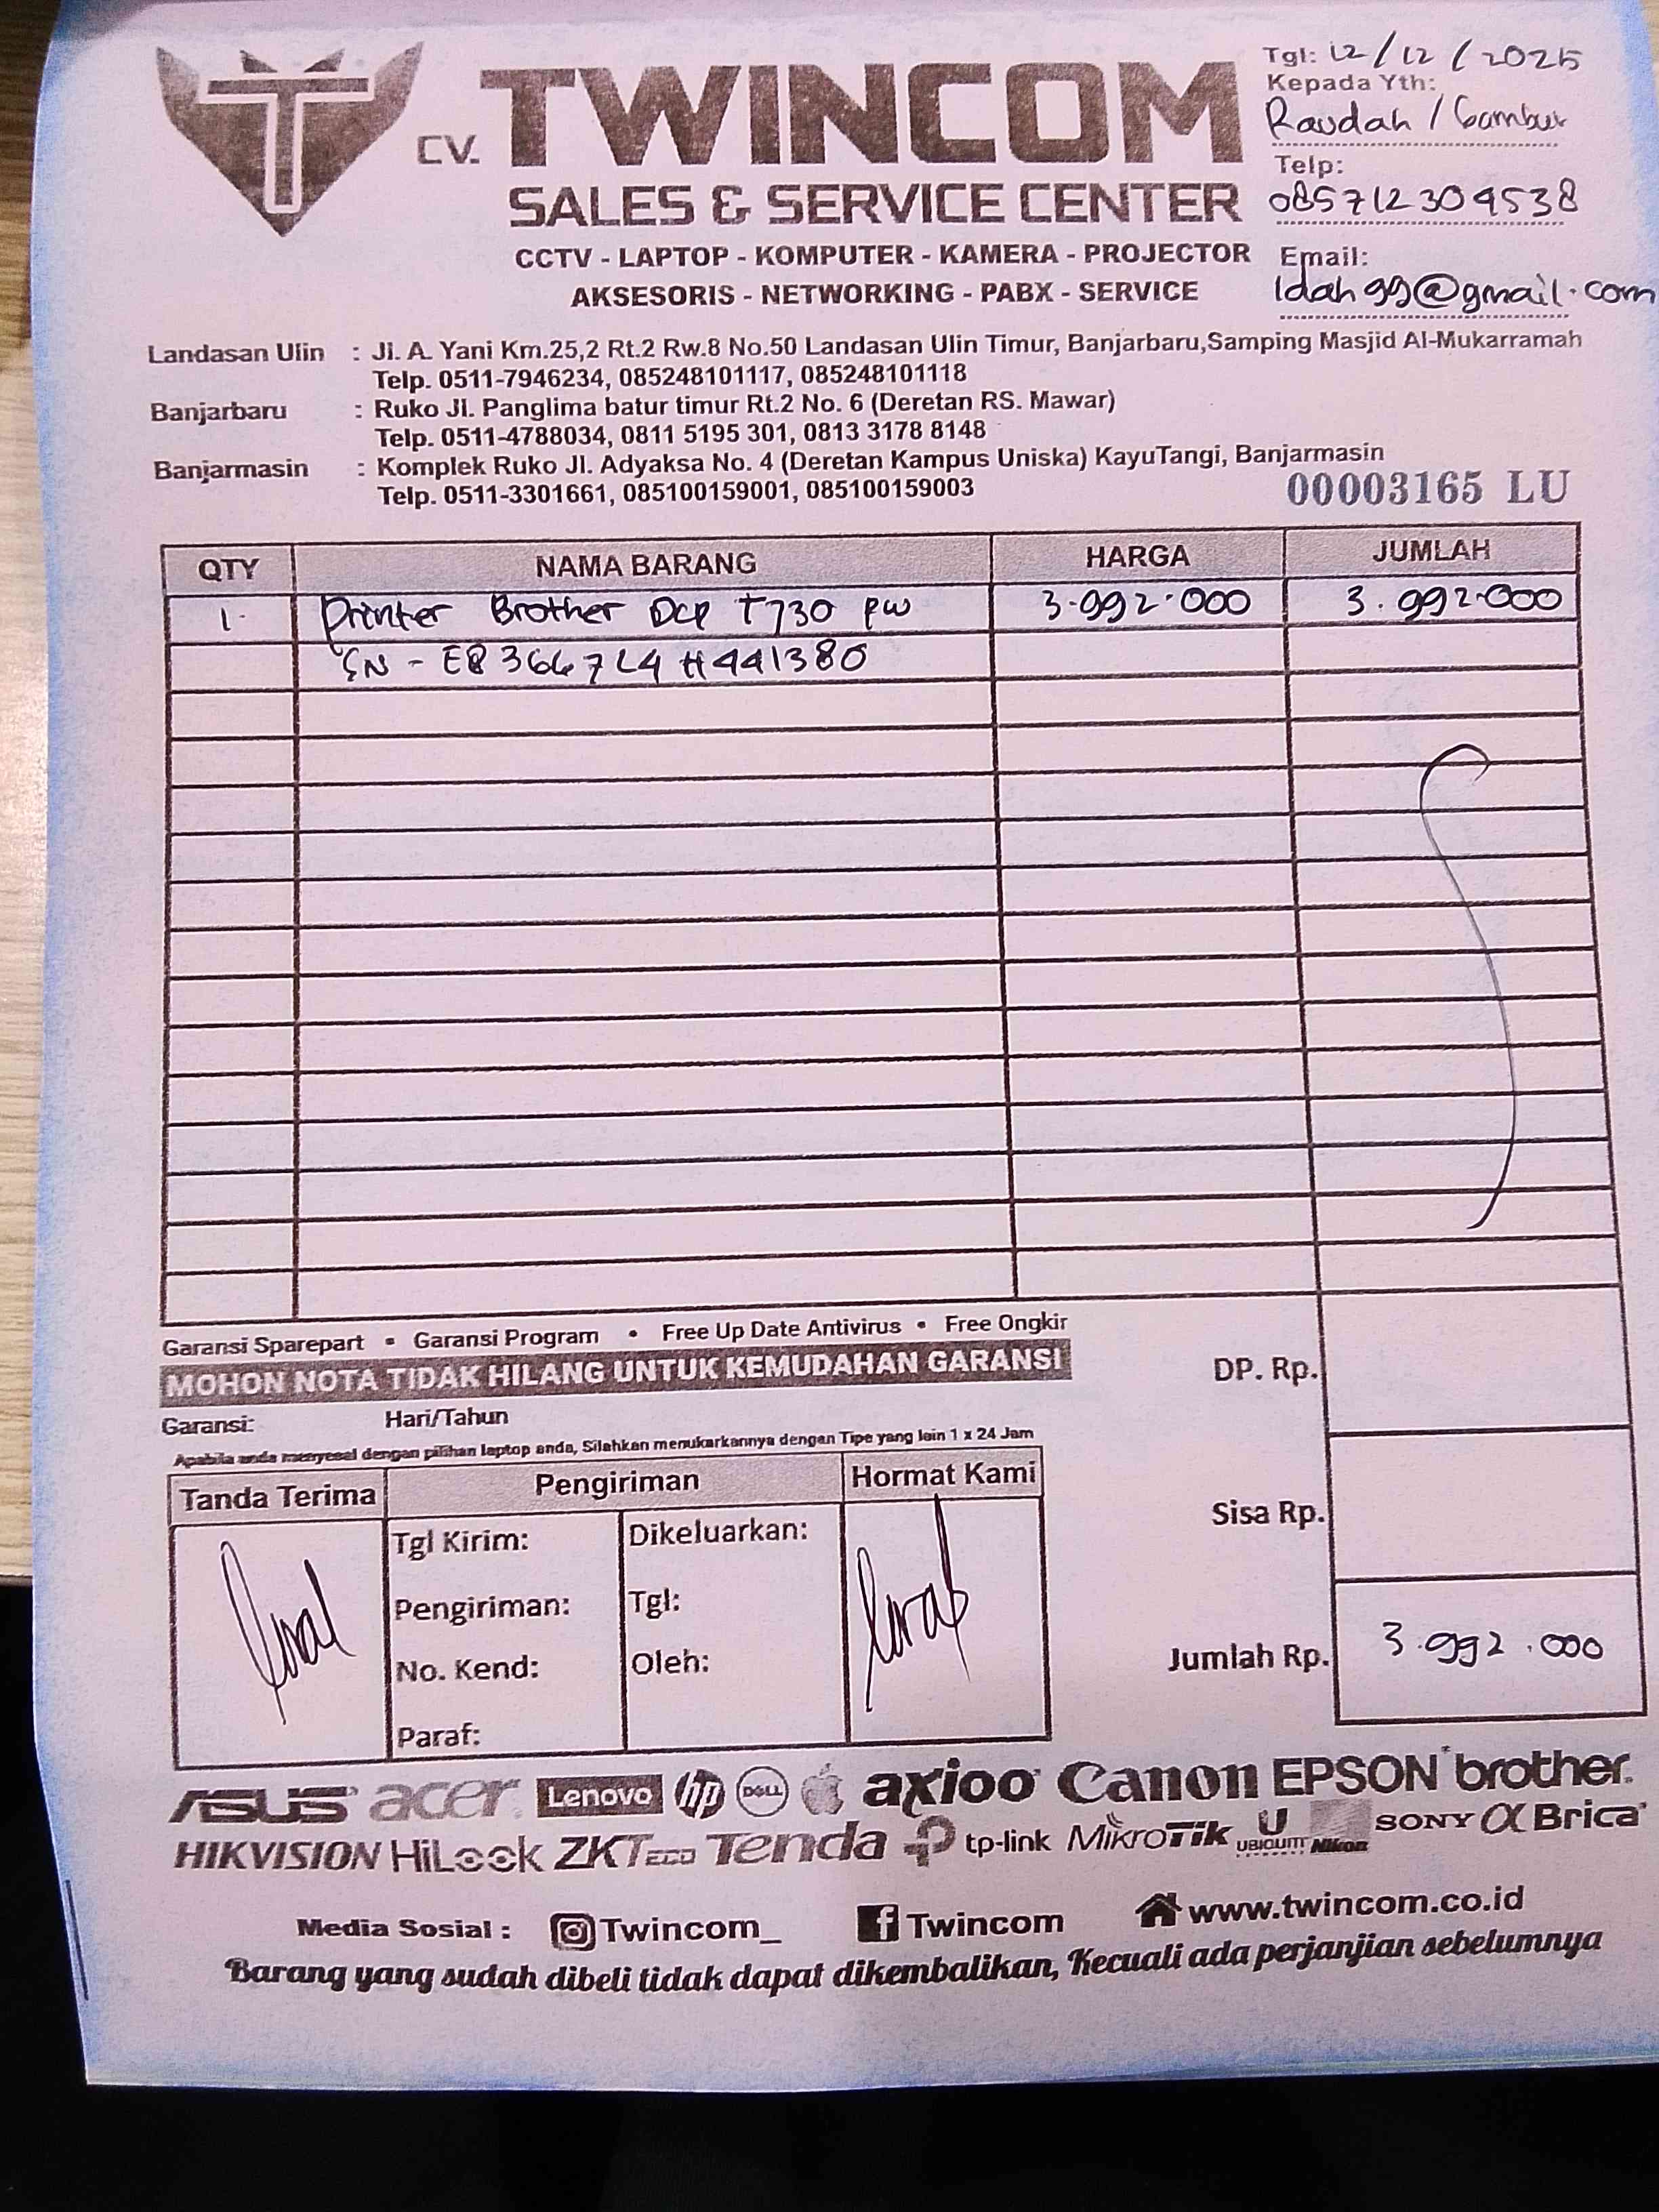 Tgl: 12/12/2025
Kepada Yth:
Raudah / Gambut
Telp:
085712304538
Email:
Idah99@gmail.com
CV. TWINCOM
SALES & SERVICE CENTER
CCTV - LAPTOP - KOMPUTER - KAMERA - PROJECTOR
AKSESORIS - NETWORKING - PABX - SERVICE
Landasan Ulin : Jl. A. Yani Km.25,2 Rt.2 Rw.8 No.50 Landasan Ulin Timur, Banjarbaru,Samping Masjid Al-Mukarramah
Telp. 0511-7946234, 085248101117, 085248101118
Banjarbaru : Ruko Jl. Panglima batur timur Rt.2 No. 6 (Deretan RS. Mawar)
Telp. 0511-4788034, 0811 5195 301, 0813 3178 8148
Banjarmasin : Komplek Ruko Jl. Adyaksa No. 4 (Deretan Kampus Uniska) KayuTangi, Banjarmasin
Telp. 0511-3301661, 085100159001, 085100159003
00003165 LU
QTY NAMA BARANG HARGA JUMLAH
1. Printer Brother Dcp T730 pw 3.992.000 3.992.000
SN - E83667L4H441380
Garansi Sparepart • Garansi Program • Free Up Date Antivirus • Free Ongkir
MOHON NOTA TIDAK HILANG UNTUK KEMUDAHAN GARANSI
Garansi: Hari/Tahun
Apabila anda menyesal dengan pilihan laptop anda, Silahkan menukarkannya dengan Tipe yang lain 1 x 24 Jam
DP. Rp.
Sisa Rp.
Jumlah Rp. 3.992.000
Tanda Terima Pengiriman Hormat Kami
Tgl Kirim: Dikeluarkan:
Pengiriman: Tgl:
No. Kend: Oleh:
Paraf:
ASUS acer Lenovo hp DELL axioo Canon EPSON brother
HIKVISION HiLook ZKTECO Tenda tp-link MikroTik U UBIQUITI Nikon SONY α Brica
Media Sosial : Twincom_ Twincom www.twincom.co.id
Barang yang sudah dibeli tidak dapat dikembalikan, Kecuali ada perjanjian sebelumnya